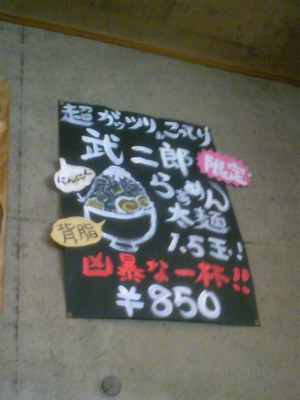 超ガッツリ&こってり
武二郎
限定
らぁめん
にんにく
太麺
背脂
1.5玉!
凶暴な一杯!!
¥850